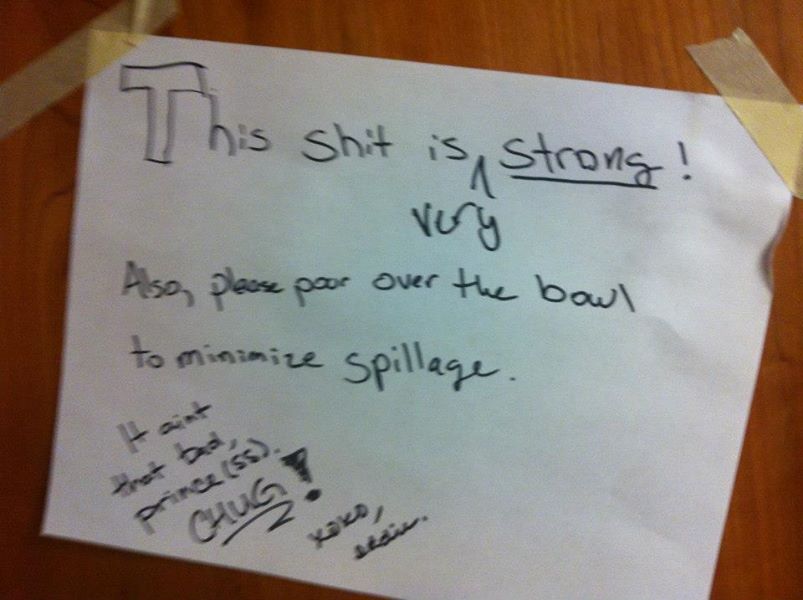 This shit is ^ strong!
very
Also, please poor over the bowl
to minimize spillage.
It aint
that bad,
prince(ss).
CHUG!
xoxo,